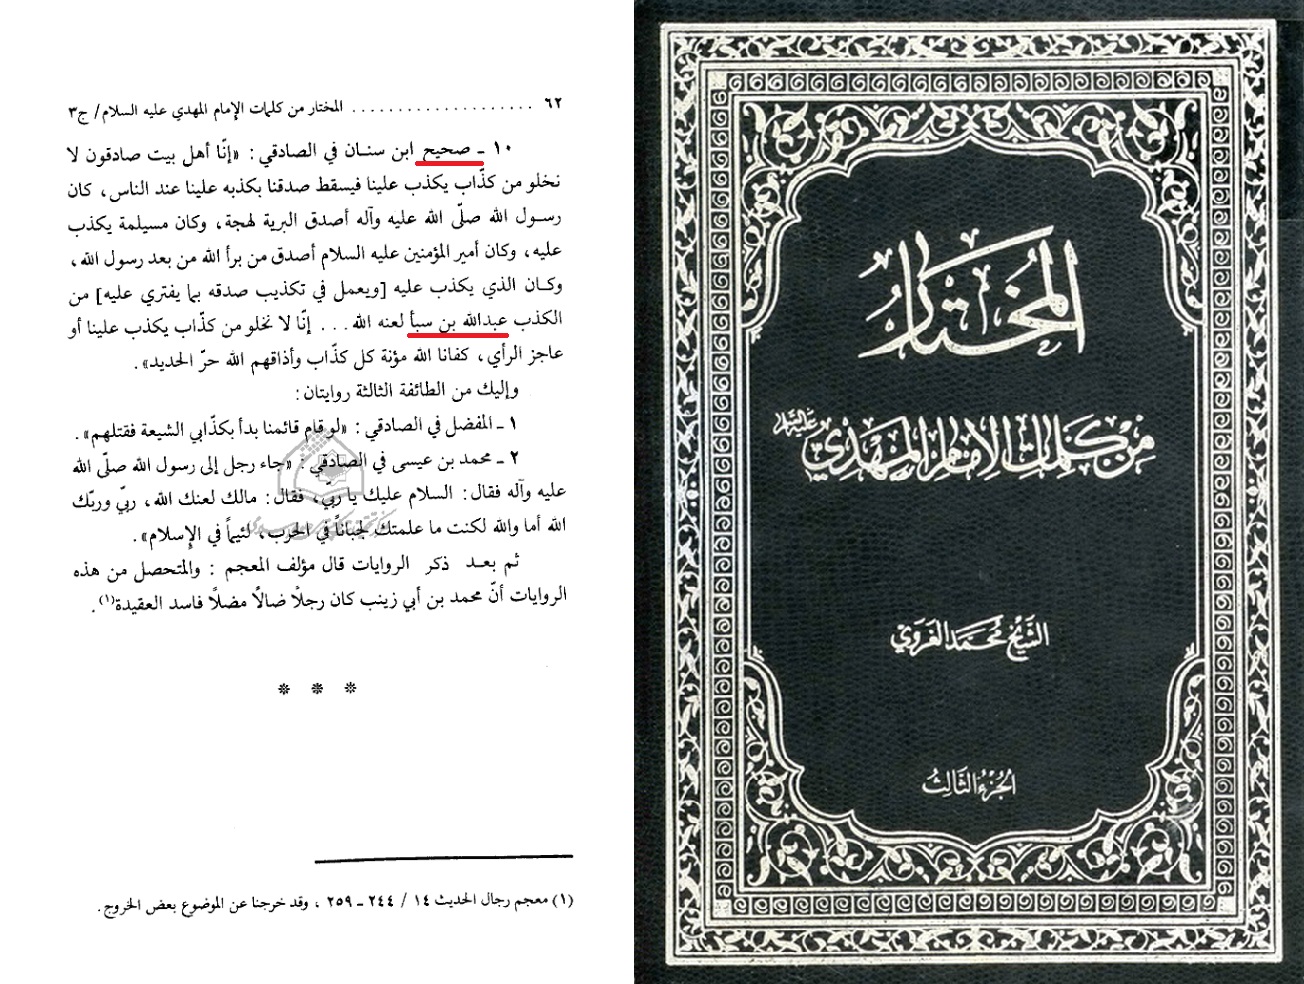 ٦٢ . . . . . . . . . . . . . . . . . . . . المختار من كلمات الإمام المهدي عليه السلام/ ج٣
١٠ ـ صحيح ابن سنـان في الصادقي : «إنّا أهل بيت صادقون لا
نخلو من كذّاب يكذب علينا فيسقط صدقنا بكذبه علينا عند الناس، كان
رسـول الله صلّى الله عليه وآله أصدق البرية لهجة، وكان مسيلمة يكذب
عليه، وكان أمير المؤمنين عليه السلام أصدق من برأ الله من بعد رسول الله،
وكـان الذي يكذب عليه [ويعمل في تكذيب صدقه بما يفتري عليه] من
الكذب عبدالله بن سبأ لعنه الله . . . إنّا لا نخلو من كذّاب يكذب علينا أو
عاجز الرأي، كفانا الله مؤنة كل كذّاب وأذاقهم الله حرّ الحديد» .
وإليك من الطائفة الثالثة روايتان :
١ ـ المفضل في الصادقي : «لو قام قائمنا بدأ بكذّابي الشيعة فقتلهم» .
٢ ـ محمد بن عيسى في الصادقي : «جاء رجل إلى رسول الله صلّى الله
عليه وآله فقال : السلام عليك يا ربّي، فقال : مالك لعنك الله، ربّي وربّك
الله أما والله لكنت ما علمتك لجباناً في الحرب، لئيماً في الإسلام» .
ثم بعـد ذكر الروايات قال مؤلف المعجم : والمتحصل من هذه
الروايات أنّ محمد بن أبي زينب كان رجلًا ضالًا مضلًا فاسد العقيدة(١) .
* * *
(١) معجم رجال الحديث ١٤ / ٢٤٤ ـ ٢٥٩ ، وقد خرجنا عن الموضوع بعض الخروج .
المختار
من كلمات الإمام المهدي عليه السلام
الشيخ محمد الغروي
الجزء الثالث